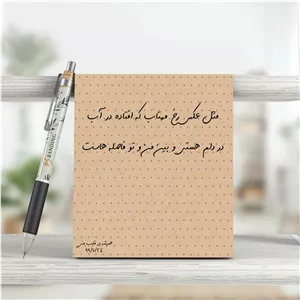 مثل عکس رخ مهتاب که افتاده در آب
در دلم هستی و بین من و تو فاصله هاست
۹۹/۱۱/۲۴